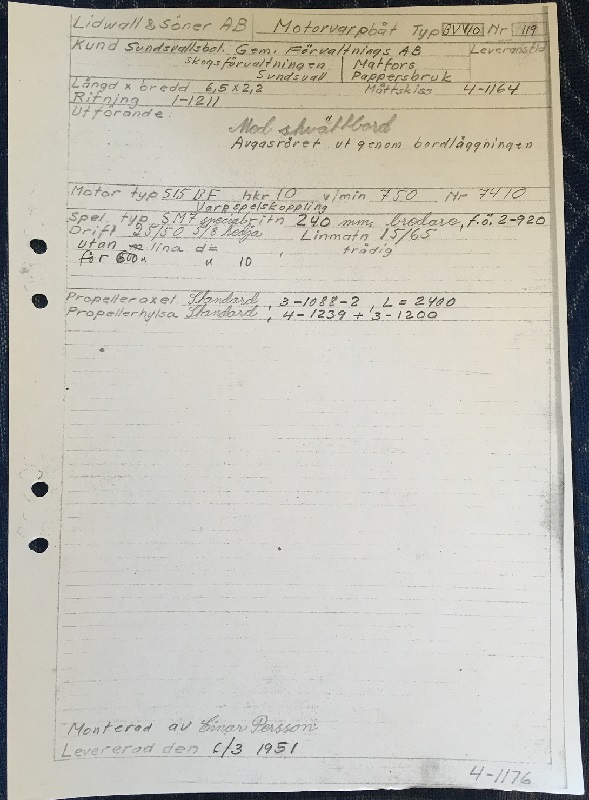 Lidwall & Söner AB Motorvarpbåt Typ BVV10 Nr 119
Kund Sundsvallsbol. Gem. Förvaltnings AB Leveranstid
Skogsförvaltningen Matfors
Sundsvall Pappersbruk
Längd x bredd 6,5 x 2,2 Måttskiss 4-1164
Ritning 1-1211
Utförande:
Med skvättbord
Avgasröret ut genom bordläggningen
Motor typ 515 BF hkr 10 v/min 750 Nr 7410
Varpspelskoppling
Spel typ SM7 special britn 240 mm, bredare, f.ö. 2-920
Drift 25/50 5/8 kedja Linmatn 15/65
utan lina d= , trådig
för 600 " 10
Propelleraxel Standard, 3-1088-2, L = 2400
Propellerhylsa Standard, 4-1239 + 3-1200
Monterad av Einar Persson
Levererad den /3 1951
4-1176